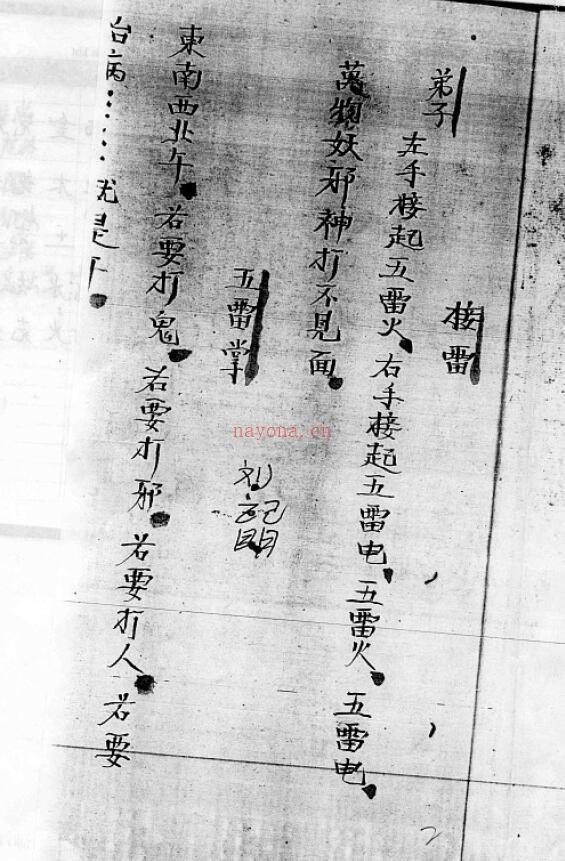 接雷
弟子
左手接起五雷火，右手接起五雷电，五雷火，五雷电，
萬物妖邪神打不見面。
五雷掌
東南西北午，若要打鬼，若要打邪，若要打人，若要
治病……就是午。
nayona.cn
2